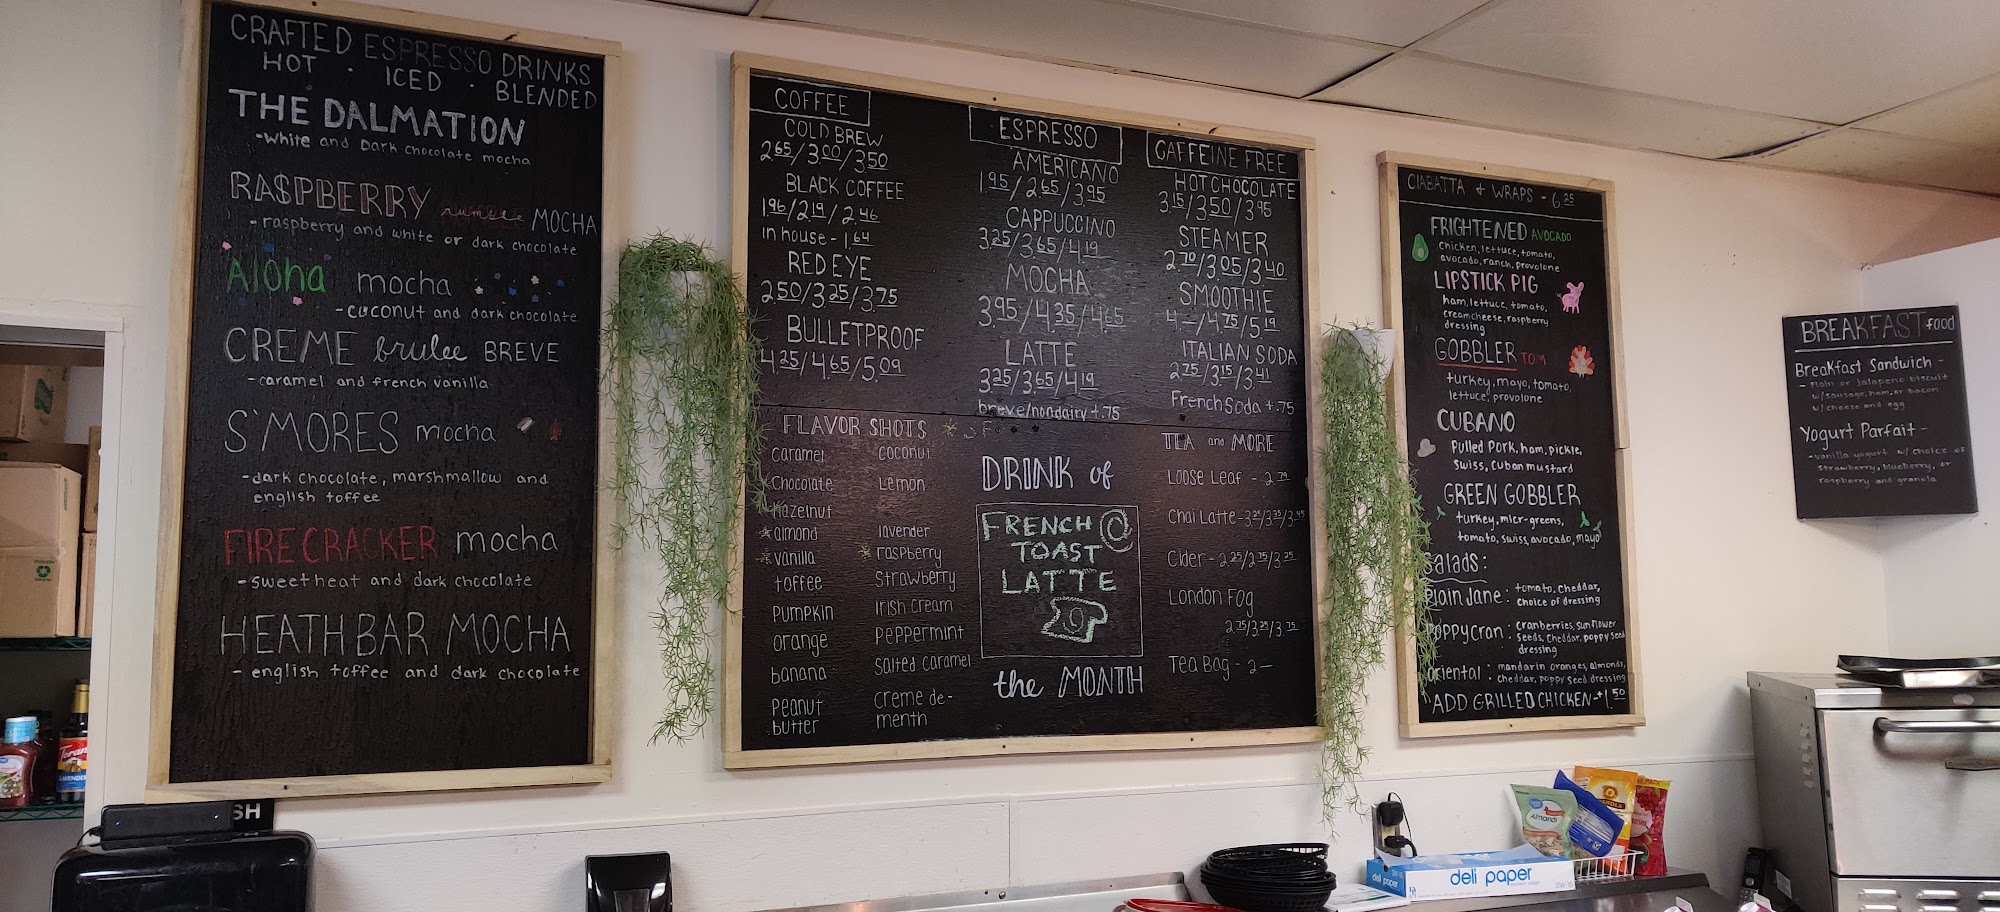 CRAFTED ESPRESSO DRINKS
HOT · ICED · BLENDED
THE DALMATION
-white and Dark chocolate mocha
RASPBERRY MOCHA
-raspberry and white or dark chocolate
Aloha mocha
-coconut and dark chocolate
CREME brulee BREVE
-caramel and french vanilla
S'MORES mocha
-dark chocolate, marshmallow and
english toffee
FIRECRACKER mocha
-sweet heat and dark chocolate
HEATH BAR MOCHA
- english toffee and dark chocolate
COFFEE
COLD BREW
2.65/3.00/3.50
BLACK COFFEE
1.96/2.19/2.46
in house - 1.64
RED EYE
2.50/3.25/3.75
BULLETPROOF
4.25/4.65/5.09
ESPRESSO
AMERICANO
1.95/2.65/3.95
CAPPUCCINO
3.25/3.65/4.19
MOCHA
3.95/4.35/4.65
LATTE
3.25/3.65/4.19
breve/nondairy +.75
CAFFEINE FREE
HOT CHOCOLATE
3.15/3.50/3.95
STEAMER
2.70/3.05/3.40
SMOOTHIE
4.—/4.75/5.19
ITALIAN SODA
2.75/3.15/3.41
French Soda +.75
FLAVOR SHOTS
Caramel
Chocolate
Hazelnut
almond
vanilla
toffee
Pumpkin
orange
banana
Peanut
butter
coconut
Lemon
lavender
raspberry
Strawberry
Irish Cream
Peppermint
Salted Caramel
Creme de-
menth
DRINK of
FRENCH
TOAST
LATTE
the MONTH
TEA and MORE
Loose Leaf - 2.79
Chai Latte - 3.25/3.35/3.45
Cider - 2.25/2.75/3.25
London Fog
2.75/3.25/3.75
Tea Bag - 2—
CIABATTA & WRAPS - 6.25
FRIGHTENED AVOCADO
chicken, lettuce, tomato,
avocado, ranch, provolone
LIPSTICK PIG
ham, lettuce, tomato,
creamcheese, raspberry
dressing
GOBBLER TOM
turkey, mayo, tomato,
lettuce, provolone
CUBANO
Pulled Pork, ham, pickle,
Swiss, Cuban mustard
GREEN GOBBLER
turkey, micr-greens,
tomato, swiss, avocado, mayo
Salads:
Plain Jane: tomato, cheddar,
choice of dressing
Poppycran: cranberries, sunflower
seeds, cheddar, poppy seed
dressing
Oriental: mandarin oranges, almonds,
cheddar, poppy seed dressing
ADD GRILLED CHICKEN - +1.50
BREAKFAST food
Breakfast Sandwich -
- Plain or Jalapeno biscuit
w/ sausage, ham, or bacon
w/ cheese and egg
Yogurt Parfait -
-vanilla yogurt w/ choice of
strawberry, blueberry, or
raspberry and granola
Torani
LAVENDER
SH
Almonds
deli paper
deli paper